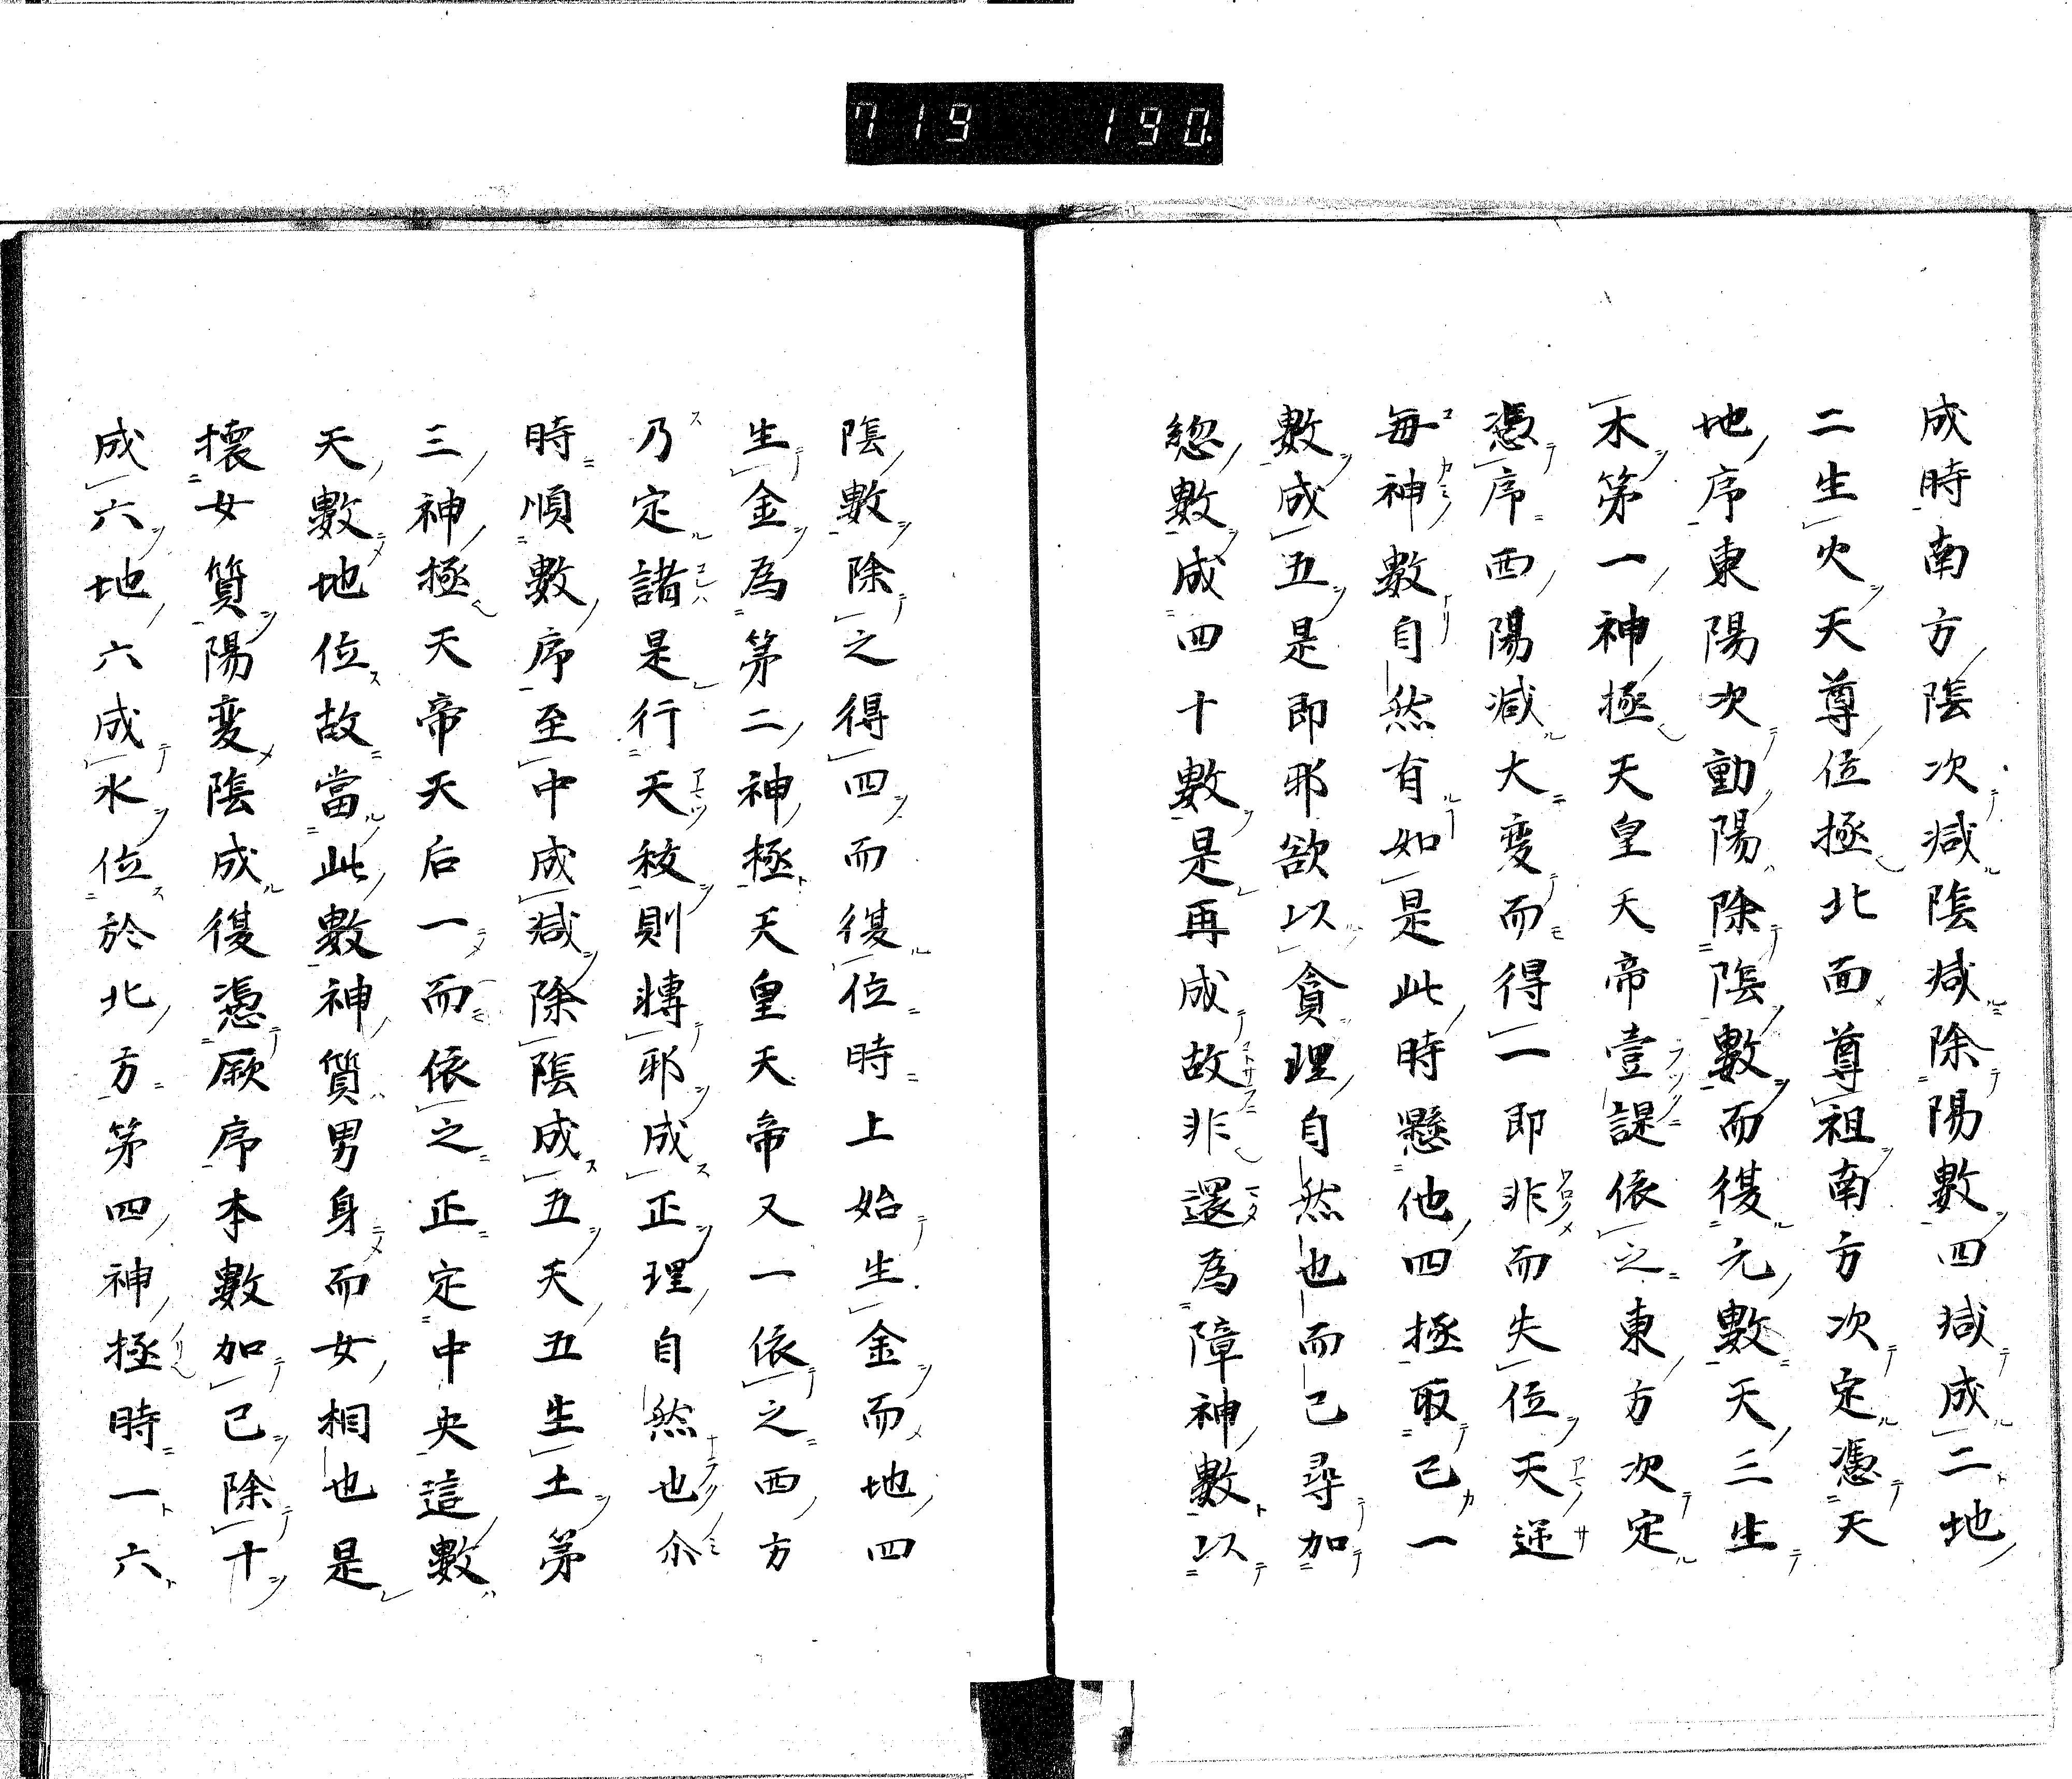 719 190.
成時南方陰次減陰減除陽數四減成二地
二生火天尊位極北面尊祖南方次定憑天
地序東陽次動陽除陰數而復元數天三生
木第一神極天皇天帝壹諟依之東方次定
憑序西陽減大変而得一即非而失位天逆
每神數自然有如是此時懸他四極取己一
數成五是即邪欲以貪理自然也而已尋加
総數成四十數是再成故非還為障神數以
陰數除之得四而復位時上始生金而地四
生金為第二神極天皇天帝又一依之西方
乃定諸是行天秘則轉邪成正理自然也尒
時順數序至中成減除陰成五天五生土第
三神極天帝天后一而依之正定中央這數
天數地位故當此數神質男身而女相也是
壊女質陽変陰成復憑厥序本數加己除十
成六地六成水位於北方第四神極時一六